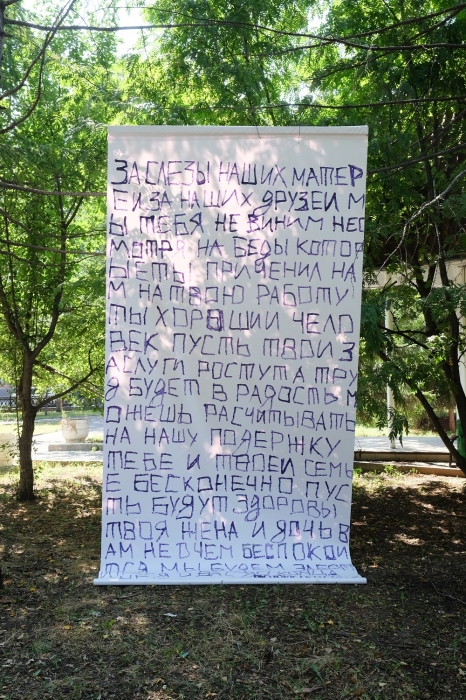 ЗА СЛЕЗЫ НАШИХ МАТЕР
Е И ЗА НАШИХ ДРУЗЕИ М
Ы ТЕБЯ НЕ ВИНИМ НЕС
МОТРЯ НА БЕДЫ КОТОР
ЫЕ ТЫ ПРИЧЕНИЛ НА
М НА ТВОЮ РАБОТУ
ТЫ ХОРОШИИ ЧЕЛО
ВЕК ПУСТЬ ТВОИ З
АСЛУГИ РОСТУТ А ТРУ
Д БУДЕТ В РАДОСТЬ М
ОЖЕШЬ РАСЧИТЫВАТЬ
НА НАШУ ПОДЕРЖКУ
ТЕБЕ И ТВОЕИ СЕМЬ
Е БЕСКОНЕЧНО ПУС
ТЬ БУДУТ ЗДОРОВЫ
ТВОЯ ЖЕНА И ДОЧЬ В
АМ НЕ О ЧЕМ БЕСПОКОИ
ТСЯ МЫ БУДЕМ